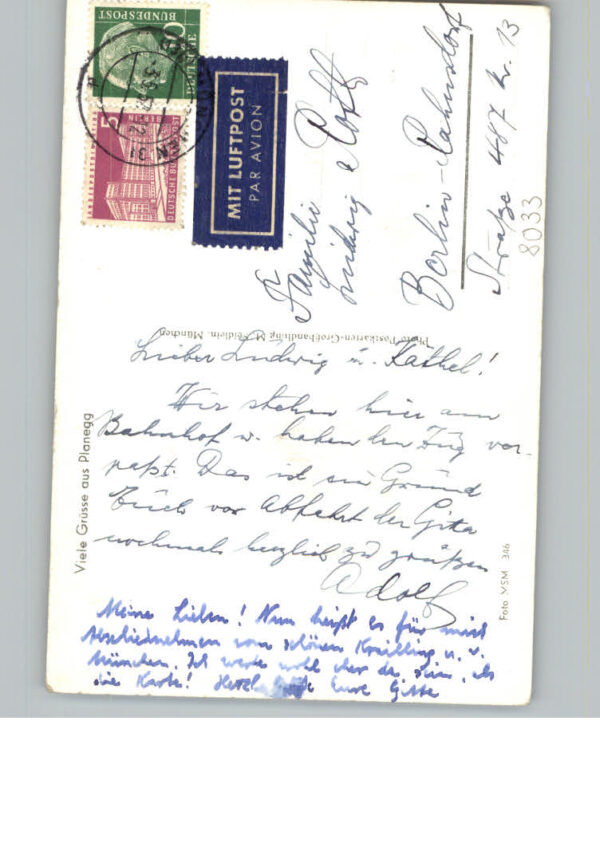 10
DEUTSCHE
BUNDESPOST
5
DEUTSCHE BUNDESPOST
BERLIN
MIT LUFTPOST
PAR AVION
Familie
Ludwig Roth
Berlin-Rahnsdorf
Straße 487 Nr. 13
8033
Photo-Postkarten-Großhandlung M. Seidlein, München
Viele Grüsse aus Planegg
Foto MSM 346
Lieber Ludwig u. Käthel!
Wir stehen hier am
Bahnhof u. haben den Zug ver-
paßt. Das ist ein Grund
Euch vor Abfahrt der Gitta
nochmals herzlich zu grüßen
Adolf
Meine Lieben! Nun heißt es für mich
Abschiednehmen vom schönen Krailling u. v.
München. Ich werde wohl eher da sein, als
die Karte! Eure Gitta